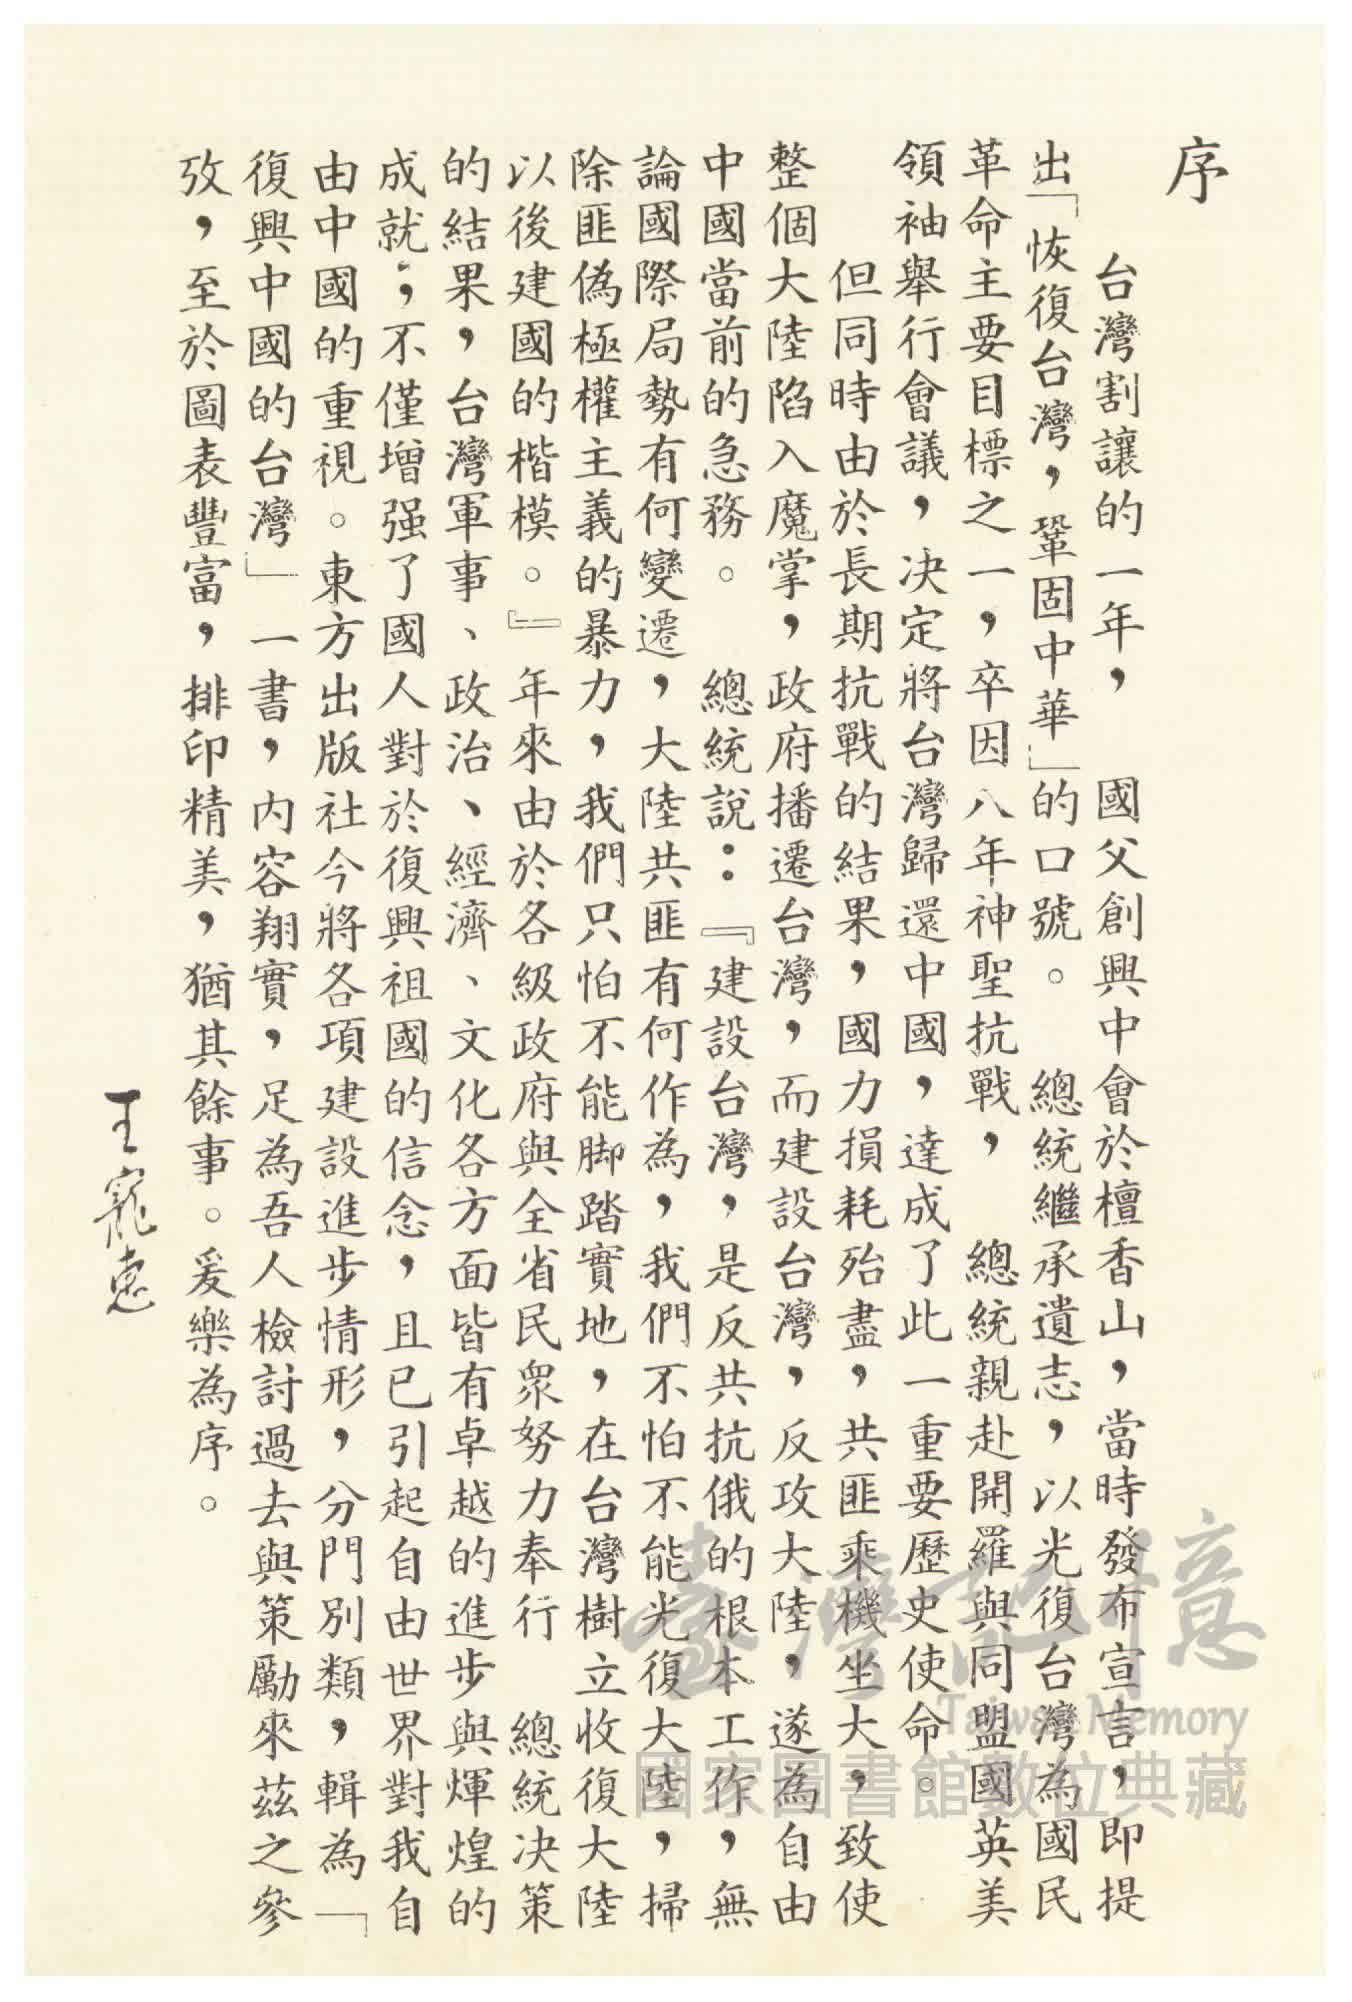 序
台灣割讓的一年，　國父創興中會於檀香山，當時發布宣言，即提
出「恢復台灣，鞏固中華」的口號。　總統繼承遺志，以光復台灣為國民
革命主要目標之一，卒因八年神聖抗戰，　總統親赴開羅與同盟國英美
領袖舉行會議，決定將台灣歸還中國，達成了此一重要歷史使命。
但同時由於長期抗戰的結果，國力損耗殆盡，共匪乘機坐大，致使
整個大陸陷入魔掌，政府播遷台灣，而建設台灣，反攻大陸，遂為自由
中國當前的急務。　總統說：『建設台灣，是反共抗俄的根本工作，無
論國際局勢有何變遷，大陸共匪有何作為，我們不怕不能光復大陸，掃
除匪偽極權主義的暴力，我們只怕不能脚踏實地，在台灣樹立收復大陸
以後建國的楷模。』年來由於各級政府與全省民眾努力奉行　總統决策
的結果，台灣軍事、政治、經濟、文化各方面皆有卓越的進步與煇煌的
成就；不僅增强了國人對於復興祖國的信念，且已引起自由世界對我自
由中國的重視。東方出版社今將各項建設進步情形，分門別類，輯為「
復興中國的台灣」一書，內容翔實，足為吾人檢討過去與策勵來茲之參
攷，至於圖表豐富，排印精美，猶其餘事。爰樂為序。
王寵惠
臺灣記憶
Taiwan Memory
國家圖書館數位典藏